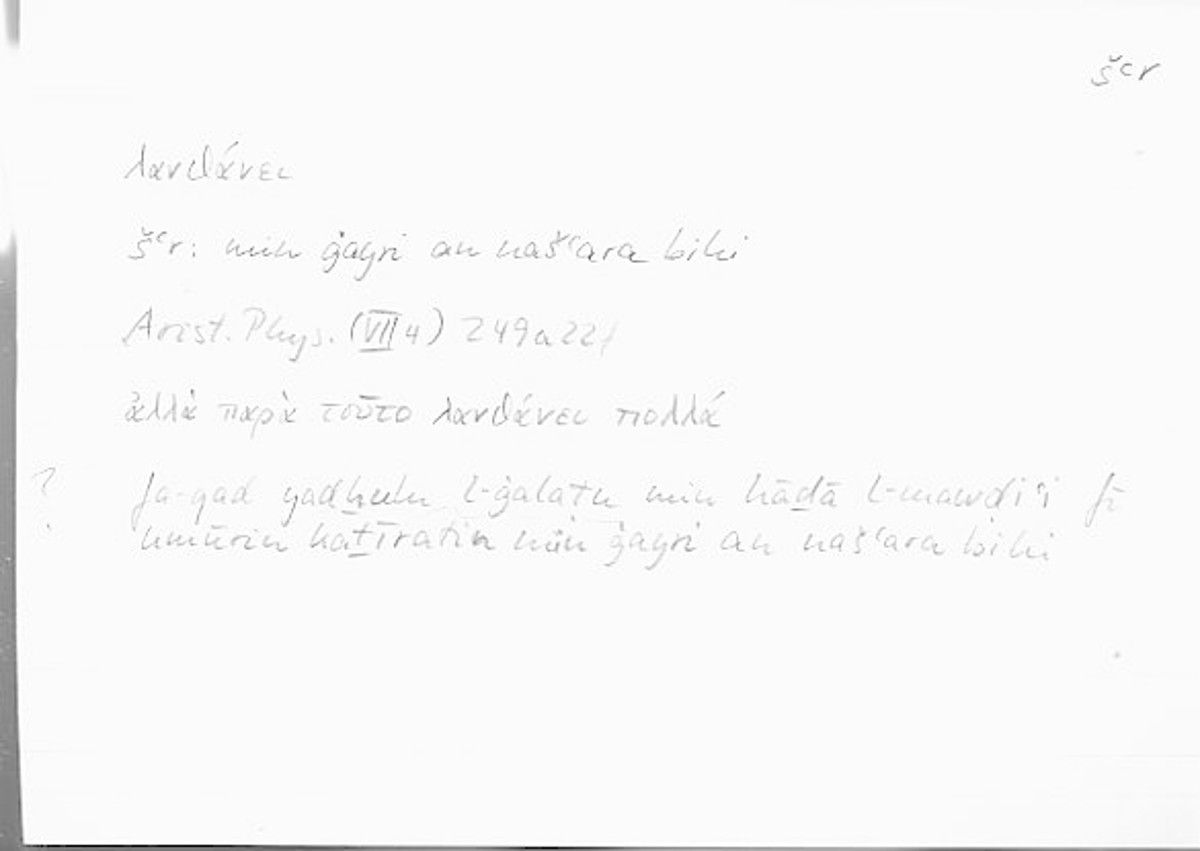 šʿr
λανθάνει
šʿr: min ġayri an našʿara bihi
Arist. Phys. (VII 4) 249a22f
ἀλλὰ παρὰ τοῦτο λανθάνει πολλά
? fa-qad yadḫulu l-ġalaṭu min hāḏā l-mawḍiʿi fī
umūrin kaṯīratin min ġayri an našʿara bihi